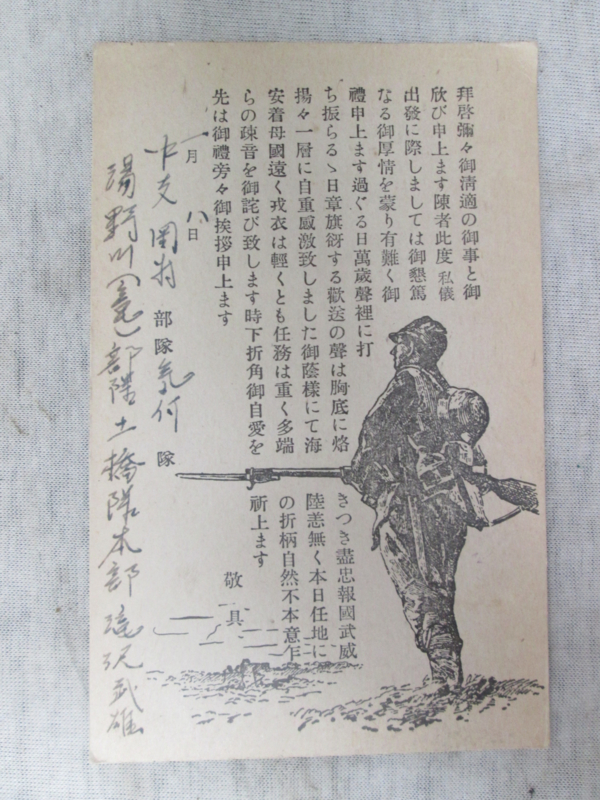 拜啓彌々御淸適の御事と御
欣び申上ます陳者此度 私儀
出發に際しましては御懇篤
なる御厚情を蒙り有難く御
禮申上ます過ぐる日萬歲聲裡に打
ち振らるゝ日章旗谺する歡送の聲は胸底に烙
きつき盡忠報國武威
揚々一層に自重感激致しました御蔭樣にて海
陸恙無く本日任地に
安着母國遠く戎衣は輕くとも任務は重く多端
の折柄自然不本意乍
らの疎音を御詫び致します時下折角御自愛を
祈上ます
先は御禮旁々御挨拶申上ます
敬具
一月八日
中支 岡村 部隊 気付 隊
湯野川 部隊土橋隊本部 滝沢武雄